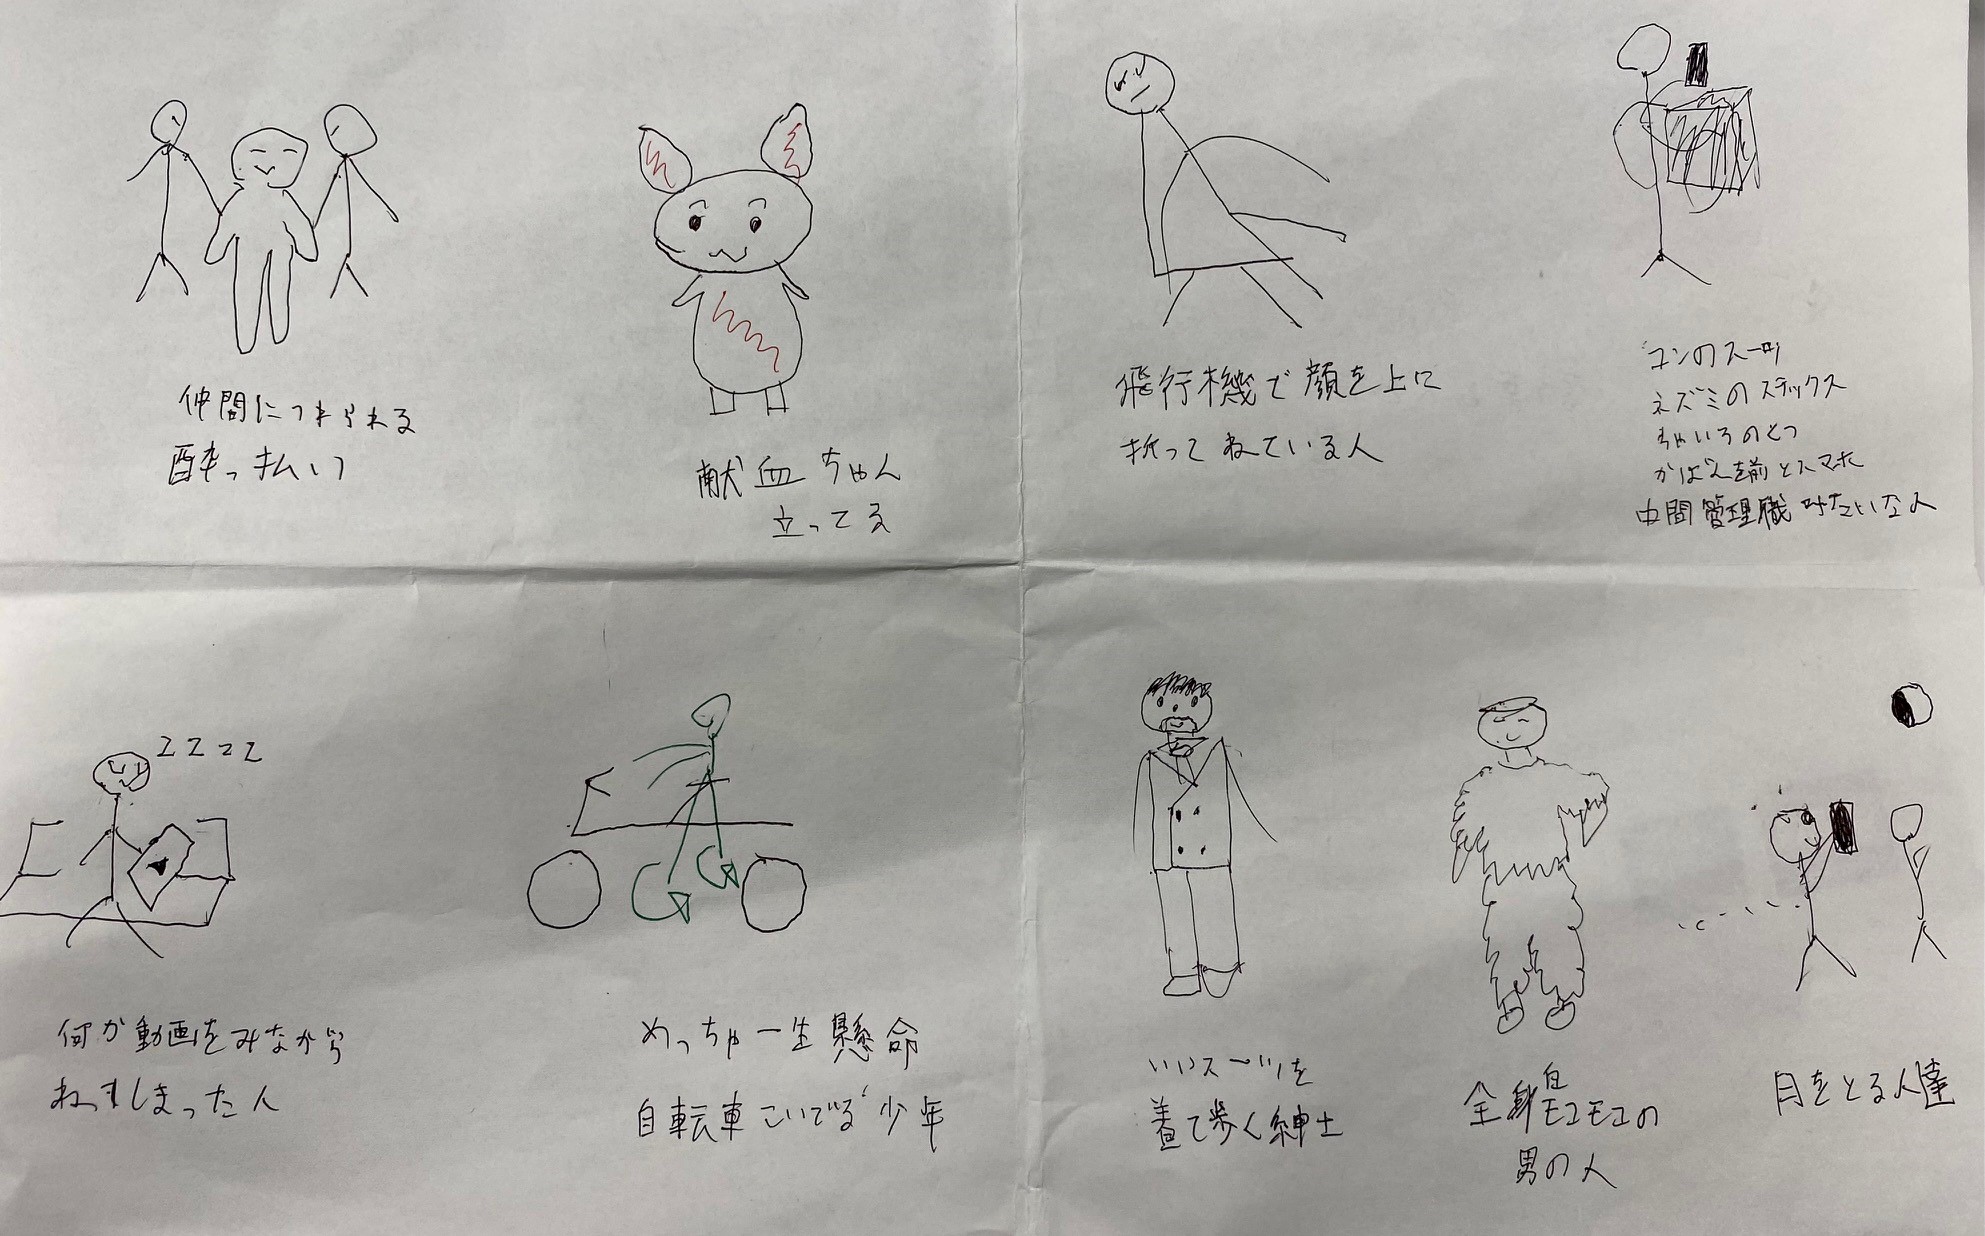 仲間につれられる
酔っ払い
献血ちゃん
立ってる
飛行機で顔を上に
折ってねている人
コンのスーツ
ネズミのスラックス
ちゃいろのくつ
かばんを前とスマホ
中間管理職みたいな人
zzzz
何か動画をみながら
ねてしまった人
めっちゃ一生懸命
自転車こいでる少年
いいスーツを
着て歩く紳士
全身白モコモコの
男の人
月をとる人達